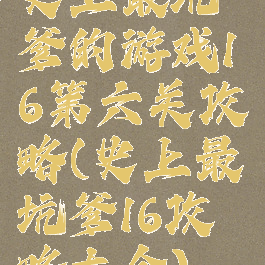 史上最坑
爹的游戏1
6第六关攻
略(史上最
坑爹16攻
略大全)